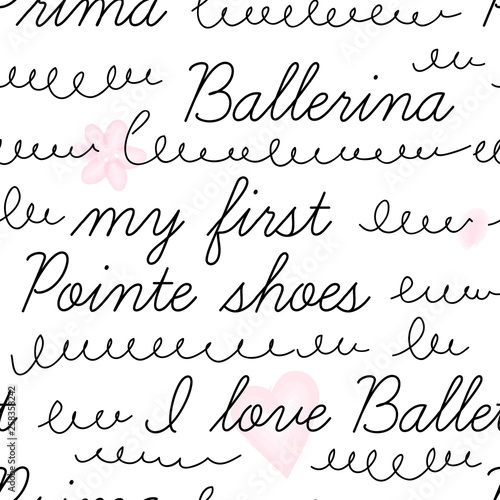 Prima
Ballerina
my first
Pointe shoes
I love Ballet
Prima